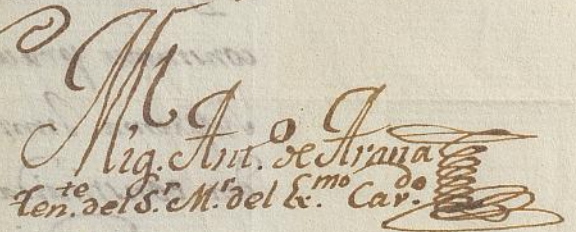 Mig. Ant.º de Arana
Ten.te del S.r M.r del Ex.mo Car.do